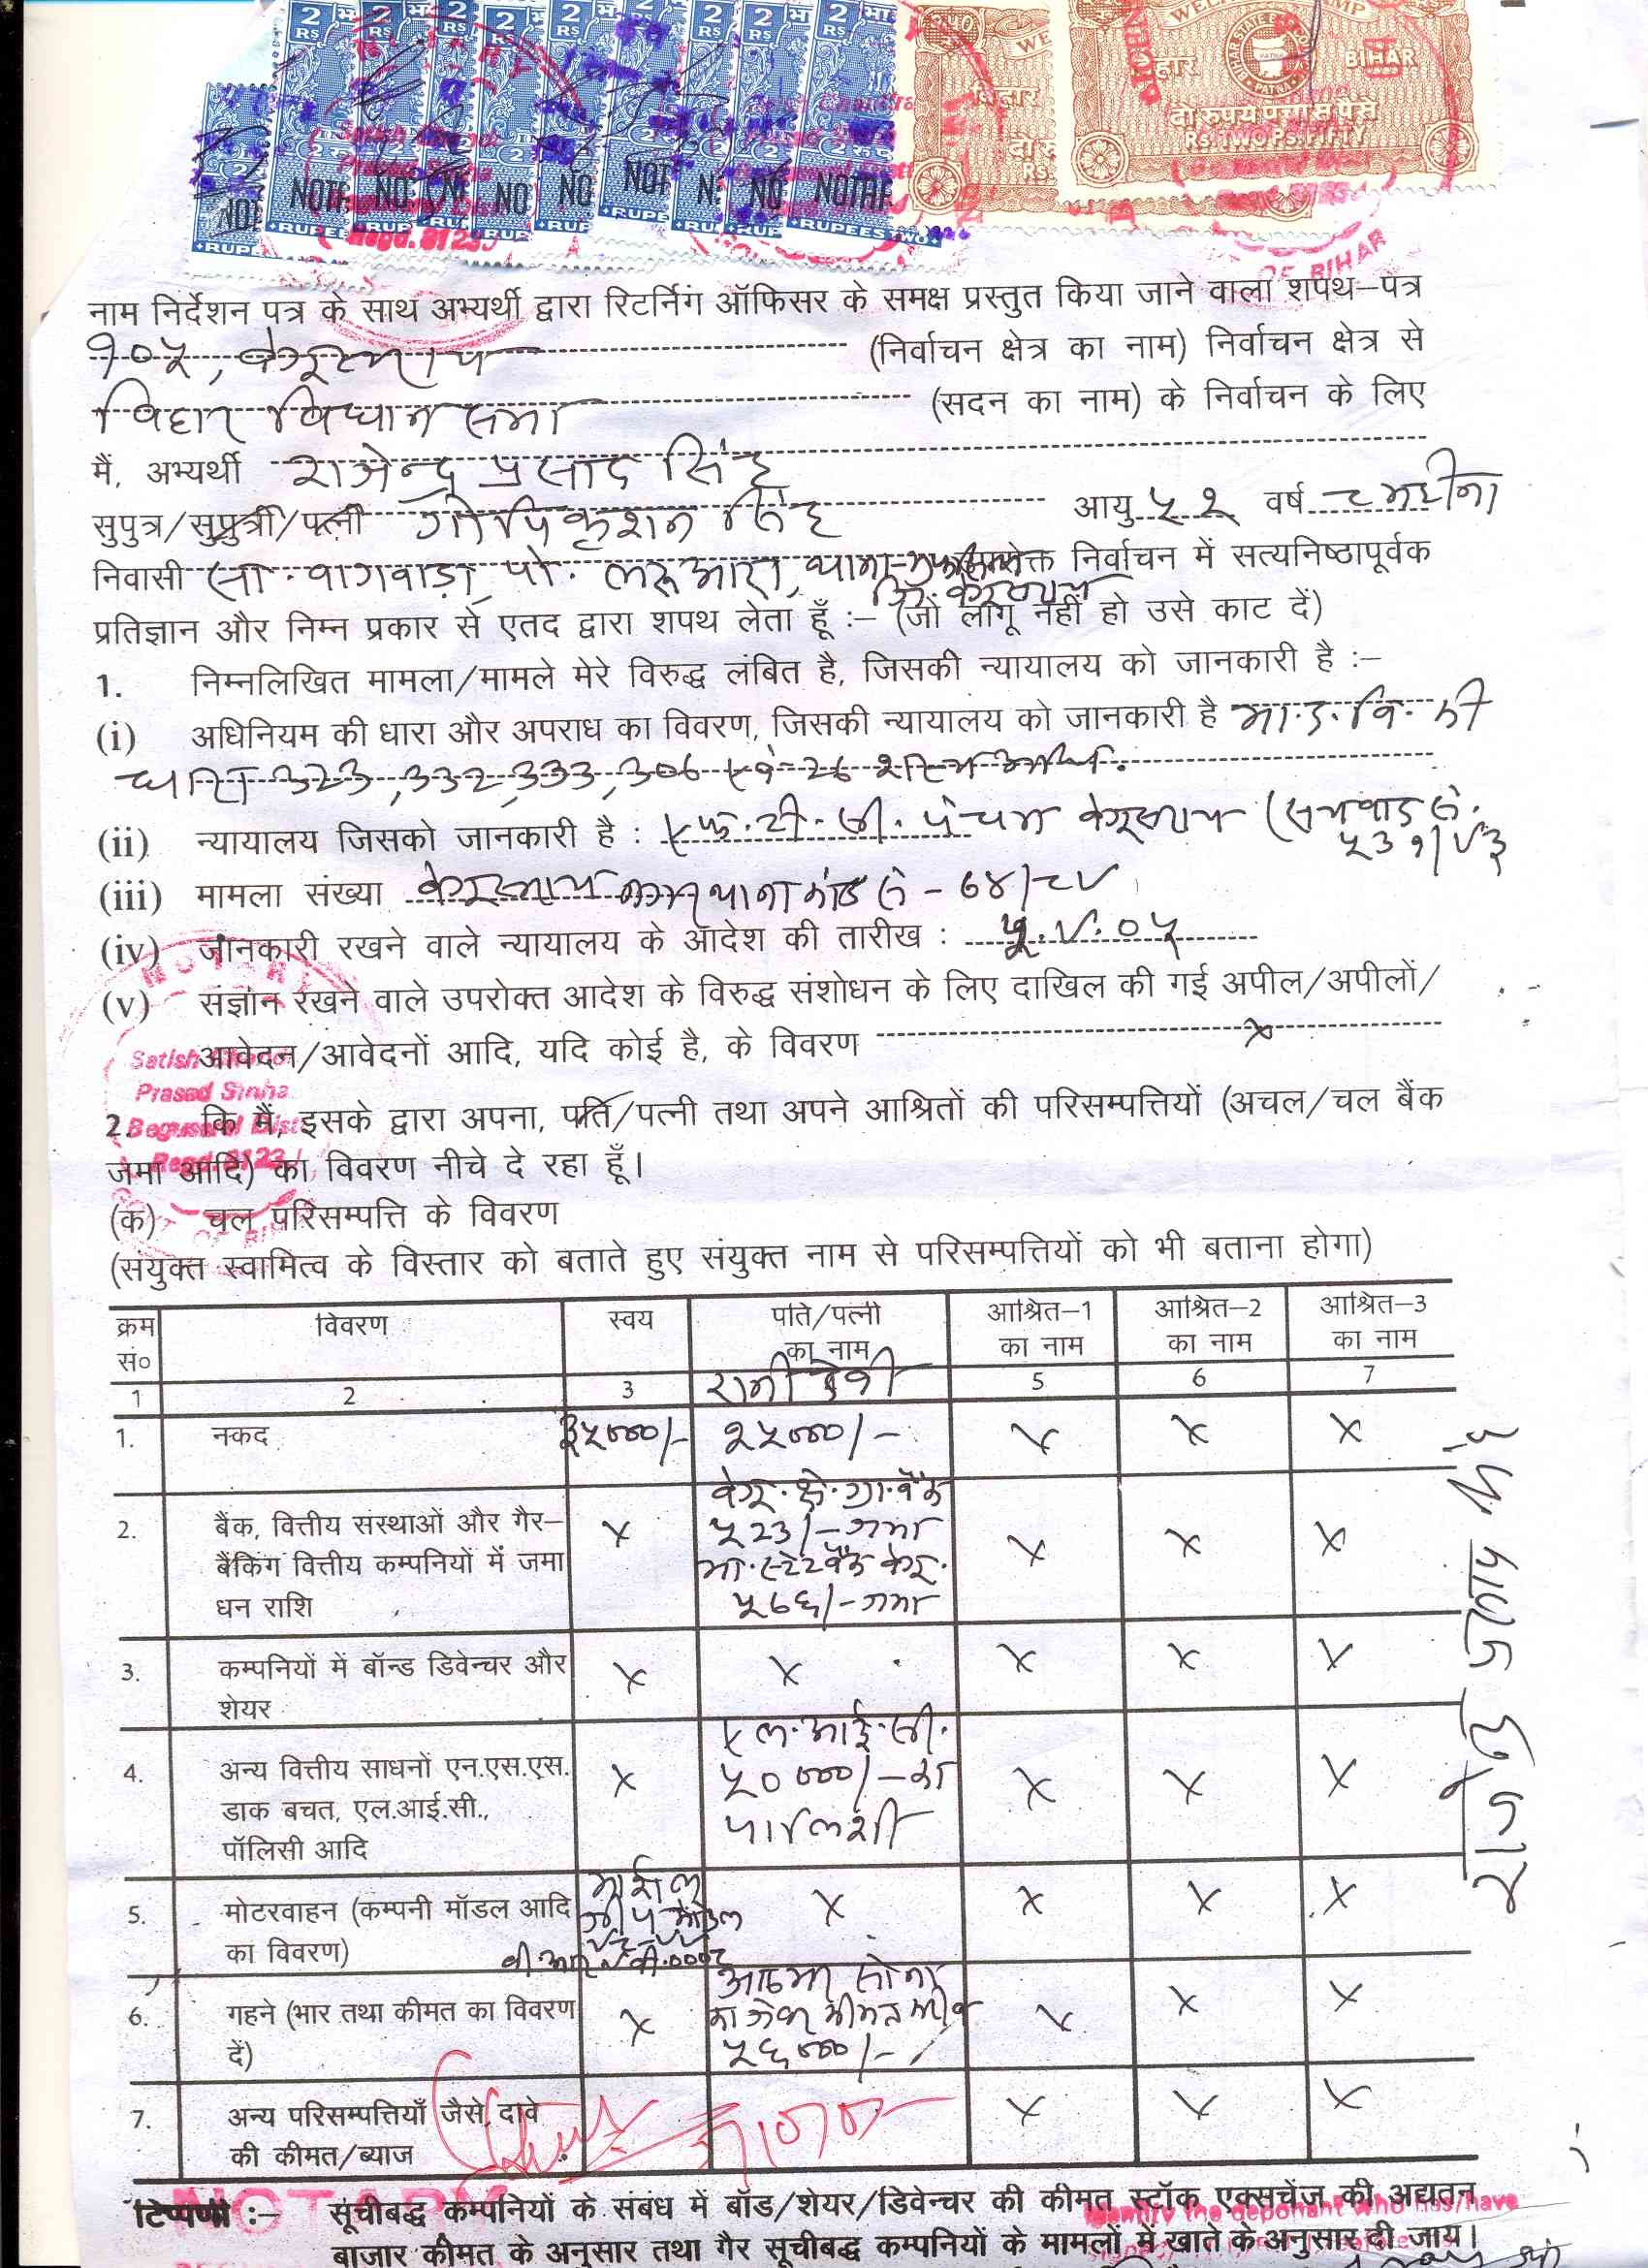 2 भा
RS
WE
बिहार
दो रु
RS.
BIHAR
दो रुपये पचास पैसे
RS. TWO P.S. FIFTY
NO NOT NO NOTAR
+RUPEES TWO+
Regd. 8123
OF BIHAR
नाम निर्देशन पत्र के साथ अभ्यर्थी द्वारा रिटर्निंग ऑफिसर के समक्ष प्रस्तुत किया जाने वाला शपथ–पत्र
१०५, बेगूसराय (निर्वाचन क्षेत्र का नाम) निर्वाचन क्षेत्र से
बिहार विधान सभा (सदन का नाम) के निर्वाचन के लिए
मैं, अभ्यर्थी राजेन्द्र प्रसाद सिंह
सुपुत्र/सुपुत्री/पत्नी गोपिकृशन सिंह आयु ५२ वर्ष
निवासी सा. वागवाड़ा, पो. लरूआरा, थाना- निर्वाचन में सत्यनिष्ठापूर्वक
प्रतिज्ञान और निम्न प्रकार से एतद द्वारा शपथ लेता हूँ :– (जो लागू नहीं हो उसे काट दें)
1. निम्नलिखित मामला/मामले मेरे विरुद्ध लंबित है, जिसकी न्यायालय को जानकारी है :–
(i) अधिनियम की धारा और अपराध का विवरण, जिसकी न्यायालय को जानकारी है भा.द.वि. की
धारा 323, 332, 333, 306
(ii) न्यायालय जिसको जानकारी है : एफ.टी.सी. पंचम बेगूसराय
(iii) मामला संख्या बेगूसराय थाना कांड सं -
(iv) जानकारी रखने वाले न्यायालय के आदेश की तारीख :
(v) संज्ञान रखने वाले उपरोक्त आदेश के विरुद्ध संशोधन के लिए दाखिल की गई अपील/अपीलों/
आवेदन/आवेदनों आदि, यदि कोई है, के विवरण x
Satish
Prasad Sinha
2. कि मैं, इसके द्वारा अपना, पति/पत्नी तथा अपने आश्रितों की परिसम्पत्तियों (अचल/चल बैंक
जमा आदि) का विवरण नीचे दे रहा हूँ।
(क) चल परिसम्पत्ति के विवरण
(संयुक्त स्वामित्व के विस्तार को बताते हुए संयुक्त नाम से परिसम्पत्तियों को भी बताना होगा)
क्रम सं० विवरण स्वय पति/पत्नी का नाम आश्रित–1 का नाम आश्रित–2 का नाम आश्रित–3 का नाम
1 2 3 रानी देवी 5 6 7
1. नकद ३५०००/- २५०००/- x x x
2. बैंक, वित्तीय संस्थाओं और गैर– x बेगू.क्षे.ग्रा.बैंक x x x
बैंकिंग वित्तीय कम्पनियों में जमा ५२३/- जमा
धन राशि भा.स्टेट बैंक बेगू.
५७६/- जमा
3. कम्पनियों में बॉन्ड डिवेन्चर और x x x x x
शेयर
4. अन्य वित्तीय साधनों एन.एस.एस. x एल.आई.सी. x x x
डाक बचत, एल.आई.सी., ५००००/- का
पॉलिसी आदि पालिशी
5. मोटरवाहन (कम्पनी मॉडल आदि मार्शल x x x x
का विवरण) जीप मॉडल
6. गहने (भार तथा कीमत का विवरण x आठ भर सोना x x x
दें) का जेवर कीमत करीब
५६०००/-
7. अन्य परिसम्पत्तियाँ जैसे, दावे x x x
की कीमत/ब्याज
राजेन्द्र प्रसाद सिंह
NOTARY
टिप्पणी :– सूचीबद्ध कम्पनियों के संबंध में बॉड/शेयर/डिवेन्चर की कीमत स्टॉक एक्सचेंज की अद्यतन
Identify the deponent who has/have
बाजार कीमत के अनुसार तथा गैर सूचीबद्ध कम्पनियों के मामलों में खाते के अनुसार दी जाय।